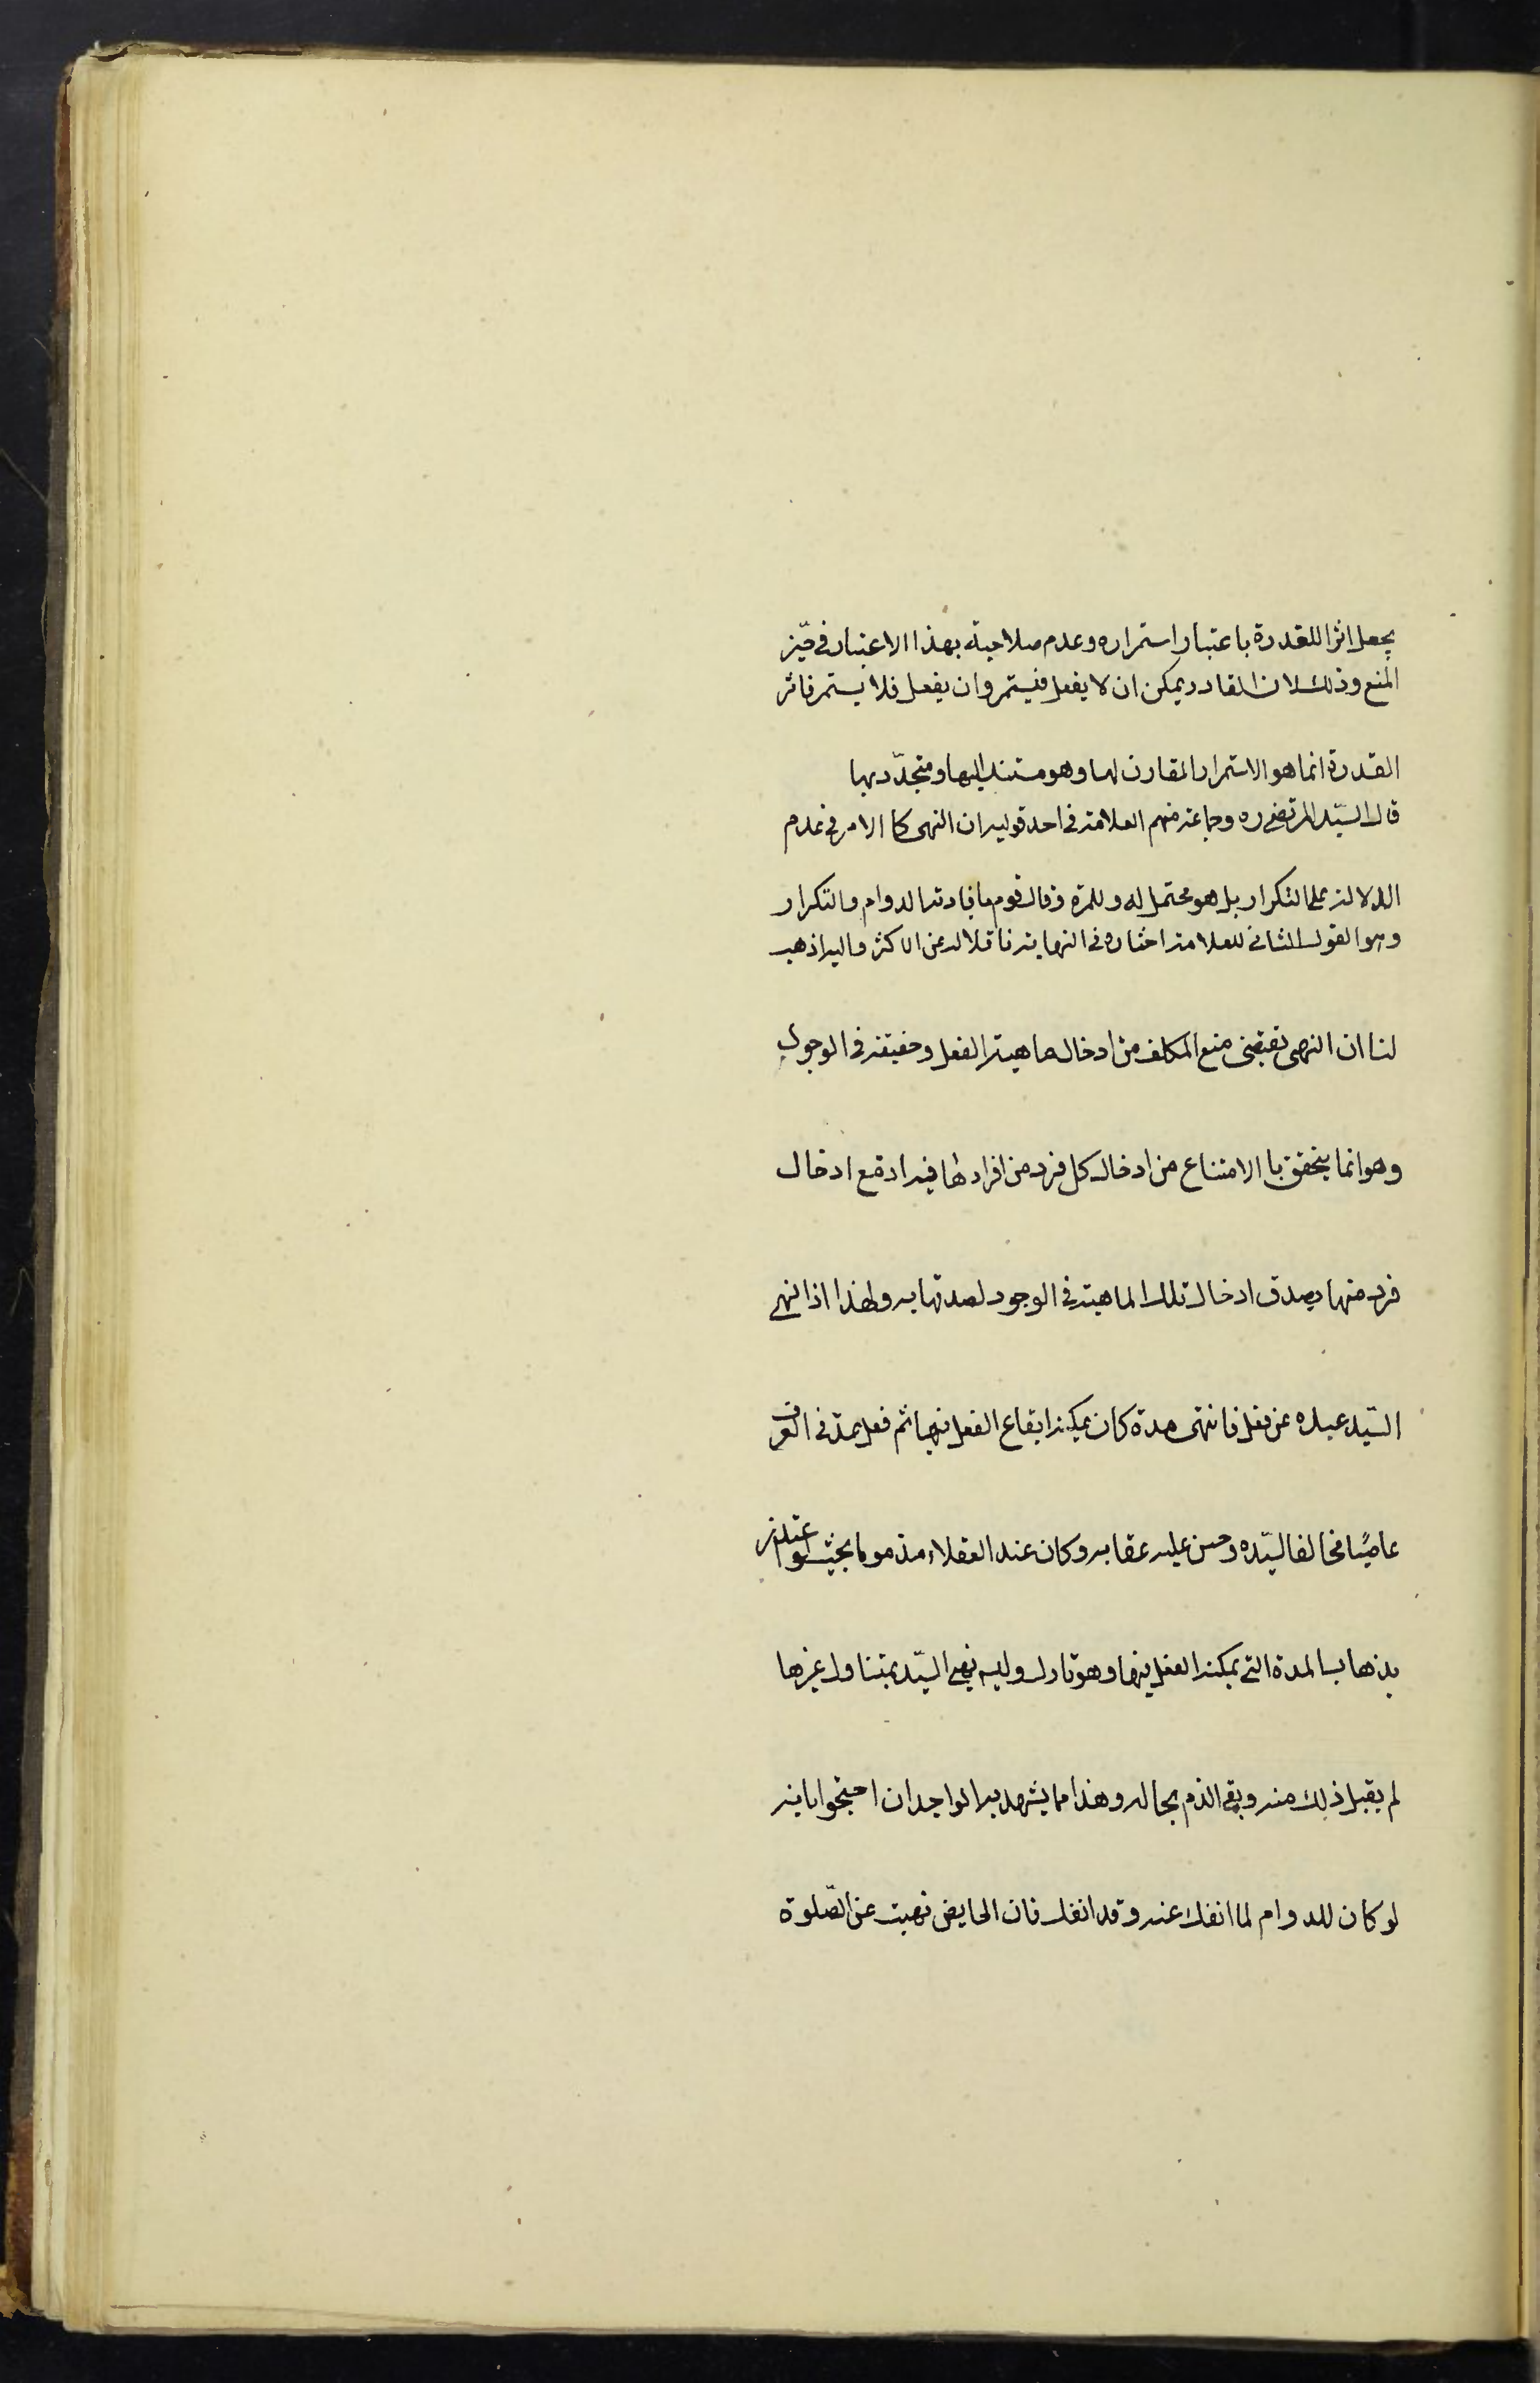 يجعل اثرا للقدرة باعتبار استمراره وعدم صلاحيته بهذا الاعتبار في حيّز
المنع وذلك لان القادر يمكن ان لا يفعل فيستمر وان يفعل فلا يستمر فاثر
القدرة انما هو الاستمرار المقارن لها وهو مستند اليها ومتجدّد بها
قال السيّد المرتضى ره وجماعة منهم العلامة في احد قوليه ان النهى كا الامر في عدم
الدلالة على التكرار بل هو محتمل له وللمرة وقال قوم بافادته الدوام والتكرار
وهو القول الثانى للعلامة اختاره في النهاية ناقلا له عن الاكثر واليه اذهب
لنا ان النهى يقتضى منع المكلف من ادخال ماهية الفعل وحقيقته في الوجود
وهو انما يتحقق با الامتناع من ادخال كل فرد من افرادها فيه اذ مع ادخال
فرد منها يصدق ادخال تلك الماهية في الوجود لصدقها به ولهذا اذا نهى
السيّد عبده عن فعل فانتهى مدة كان يمكنه ايقاع الفعل فيها ثم فعل عدّ في العرف
عاصيًا مخالفا لسيّده وحسن عليه عقابه وكان عند العقلاء مذموما بحيث لو اعتذر
بذهاب المدة التى يمكنه الفعل فيها وهو تارك وليس نهى السيّد بمتناول غيرها
لم يقبل ذلك منه وبقى الذم بحاله وهذا مما يشهد به الواجدان احتجوا بانه
لو كان للدوام لما انفك عنه وقد انفك فان الحايض نهيت عن الصّلوة